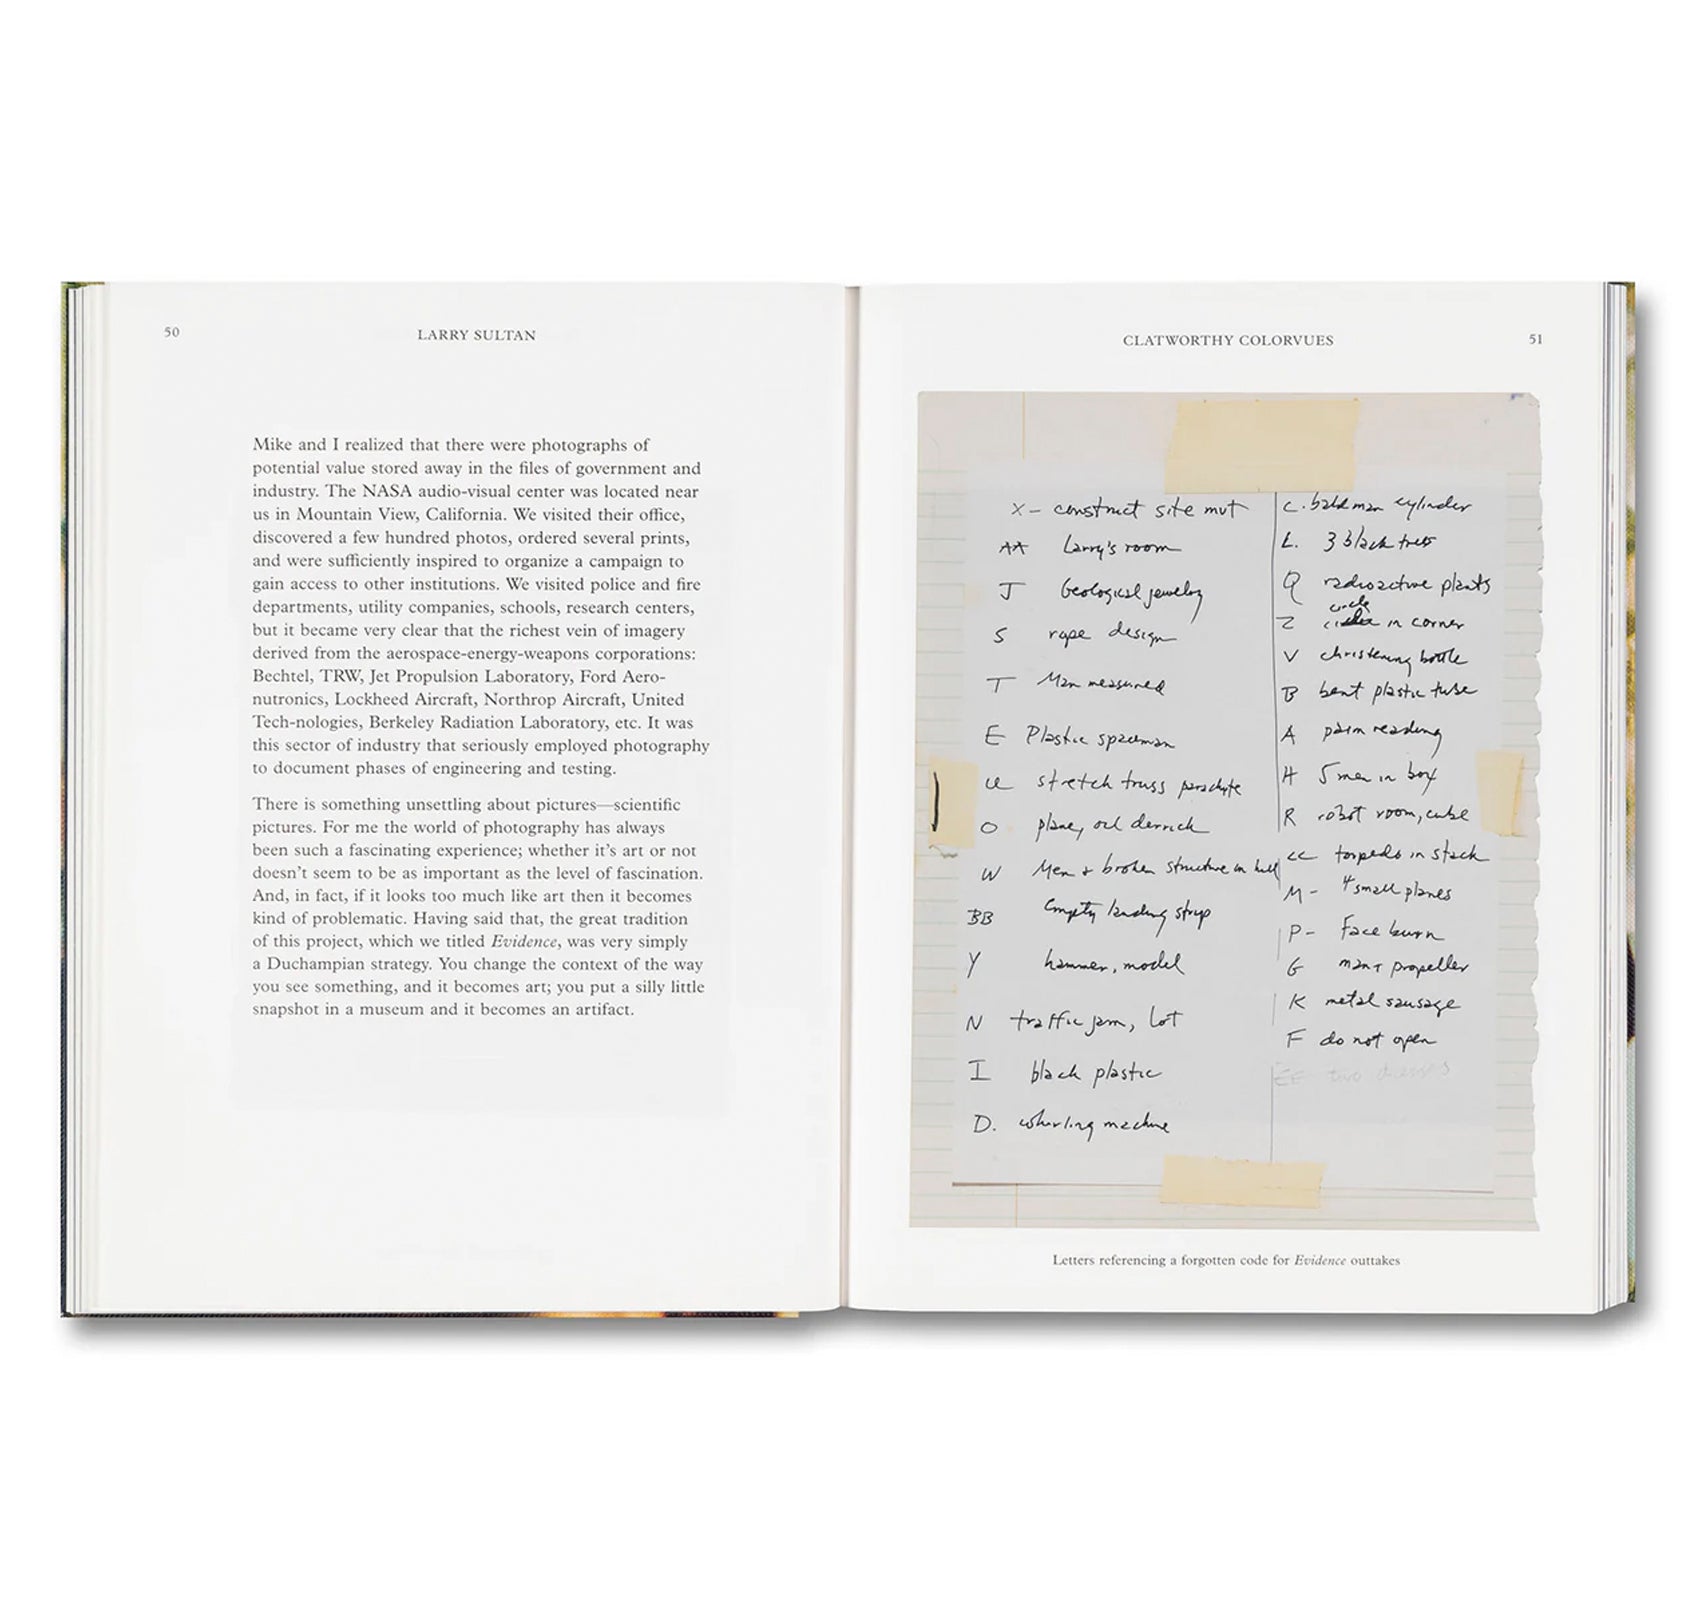 50
LARRY SULTAN
Mike and I realized that there were photographs of
potential value stored away in the files of government and
industry. The NASA audio-visual center was located near
us in Mountain View, California. We visited their office,
discovered a few hundred photos, ordered several prints,
and were sufficiently inspired to organize a campaign to
gain access to other institutions. We visited police and fire
departments, utility companies, schools, research centers,
but it became very clear that the richest vein of imagery
derived from the aerospace-energy-weapons corporations:
Bechtel, TRW, Jet Propulsion Laboratory, Ford Aero-
nutronics, Lockheed Aircraft, Northrop Aircraft, United
Tech-nologies, Berkeley Radiation Laboratory, etc. It was
this sector of industry that seriously employed photography
to document phases of engineering and testing.
There is something unsettling about pictures—scientific
pictures. For me the world of photography has always
been such a fascinating experience; whether it's art or not
doesn't seem to be as important as the level of fascination.
And, in fact, if it looks too much like art then it becomes
kind of problematic. Having said that, the great tradition
of this project, which we titled Evidence, was very simply
a Duchampian strategy. You change the context of the way
you see something, and it becomes art; you put a silly little
snapshot in a museum and it becomes an artifact.
CLATWORTHY COLORVUES
51
X - construct site mut
AA Larry's room
J Geological jewelry
S rope design
T Man measured
E Plastic spaceman
stretch truss parachute
O plane, oil derrick
W Men + broken structure in
BB Empty landing strip
Y hammer, model
N traffic jam, lot
I black plastic
D. whirling machine
C. bald man cylinder
L. 3 black trees
Q radioactive plants
circle
Z in corner
V christening bottle
B bent plastic tube
A palm reading
H 5 men in box
R robot room, cube
CC torpedo in stack
M - 4 small planes
P - Face burn
G man + propeller
K metal sausage
F do not open
EE two dresses
Letters referencing a forgotten code for Evidence outtakes